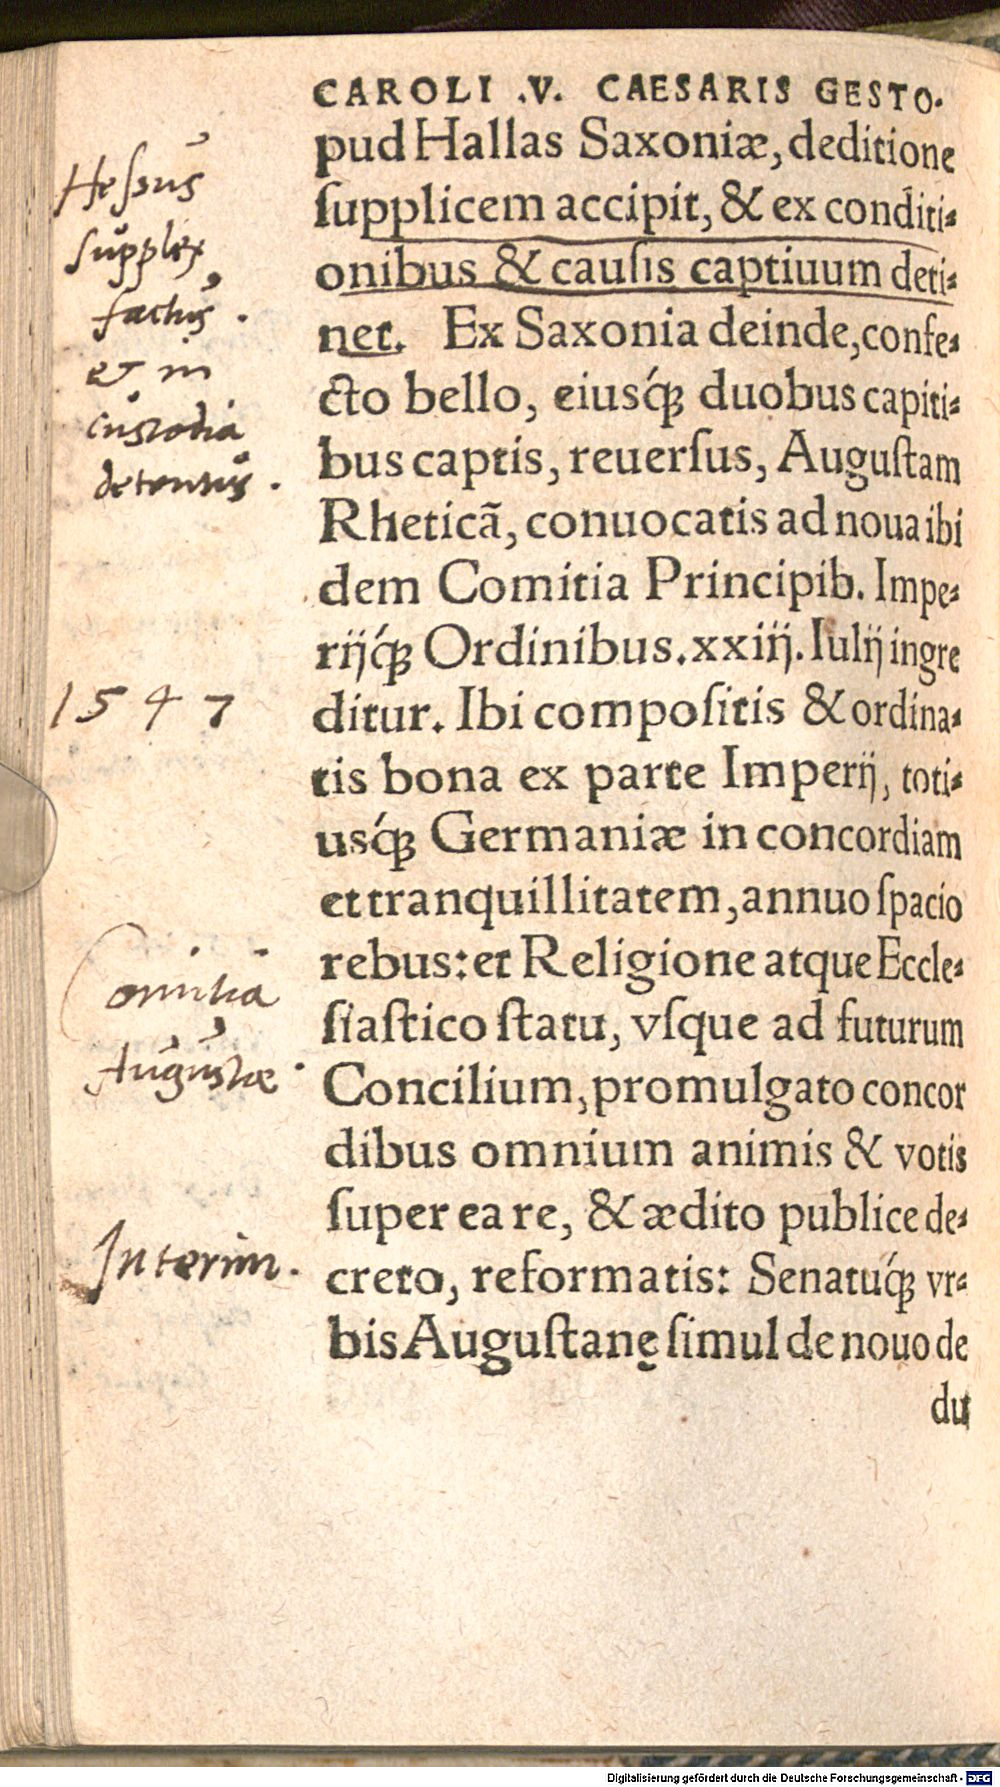 CAROLI .V. CAESARIS GESTO.
pud Hallas Saxoniæ, deditione
ſupplicem accipit, & ex conditi⸗
onibus & cauſis captiuum deti⸗
net. Ex Saxonia deinde, confe⸗
cto bello, eiusq́ꝫ duobus capiti⸗
bus captis, reuerſus, Auguſtam
Rheticã, conuocatis ad noua ibi
dem Comitia Principib. Impe⸗
rijq́ꝫ Ordinibus. xxiij. Iulij ingre
ditur. Ibi compoſitis & ordina⸗
tis bona ex parte Imperij, toti⸗
usq́ꝫ Germaniæ in concordiam
et tranquillitatem, annuo ſpacio
rebus: et Religione atque Eccle⸗
ſiaſtico ſtatu, vſque ad futurum
Concilium, promulgato concor
dibus omnium animis & votis
ſuper ea re, & ædito publice de⸗
creto, reformatis: Senatuq́ꝫ vr⸗
bis Auguſtanę ſimul de nouo de
du
Heſsus
ſupplex
factus.
et in
custodia
detentus.
1547
Comitia
Augustæ.
Interim.
Digitalisierung gefördert durch die Deutsche Forschungsgemeinschaft - DFG